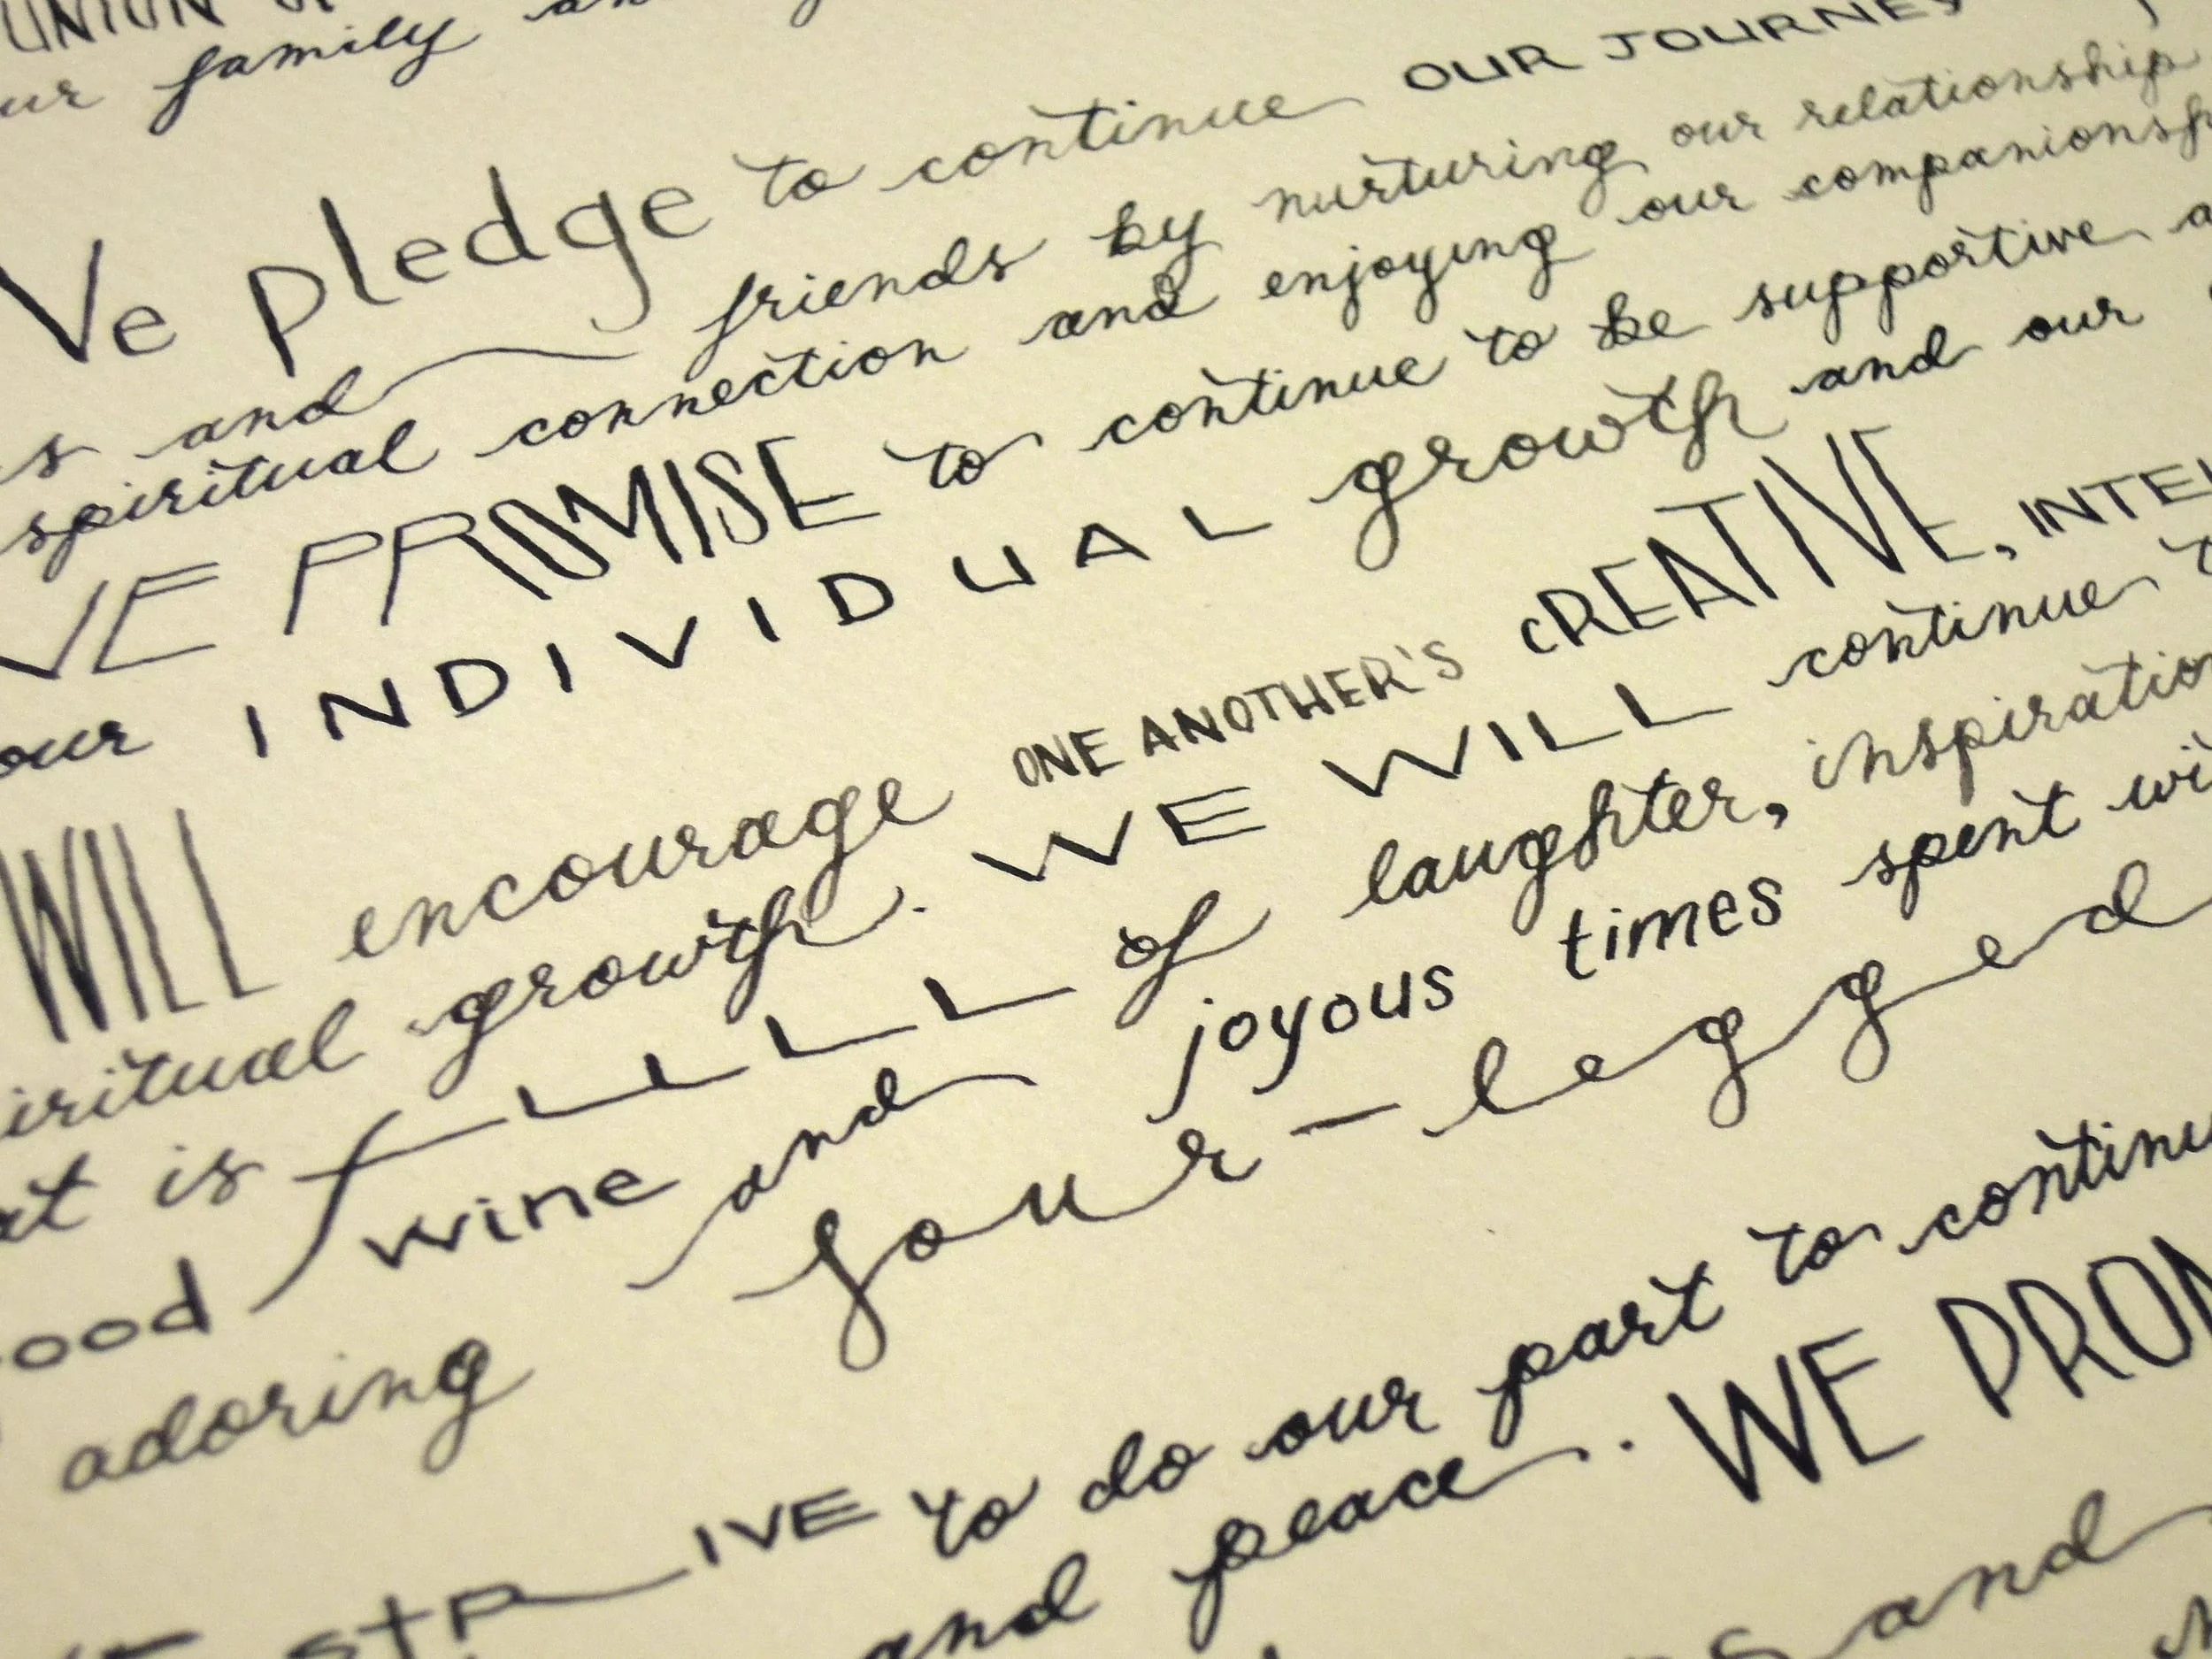 UNION
family
We pledge to continue OUR JOURNEY
and friends by nurturing our relationship
spiritual connection and enjoying our
WE PROMISE to continue to be supportive
our INDIVIDUAL growth and our
WILL encourage ONE ANOTHER'S CREATIVE,
growth. WE WILL continue
is fuLLLL of laughter, inspiration
wine and joyous times spent
adoring four-legged
to do our part to
and peace. WE
and